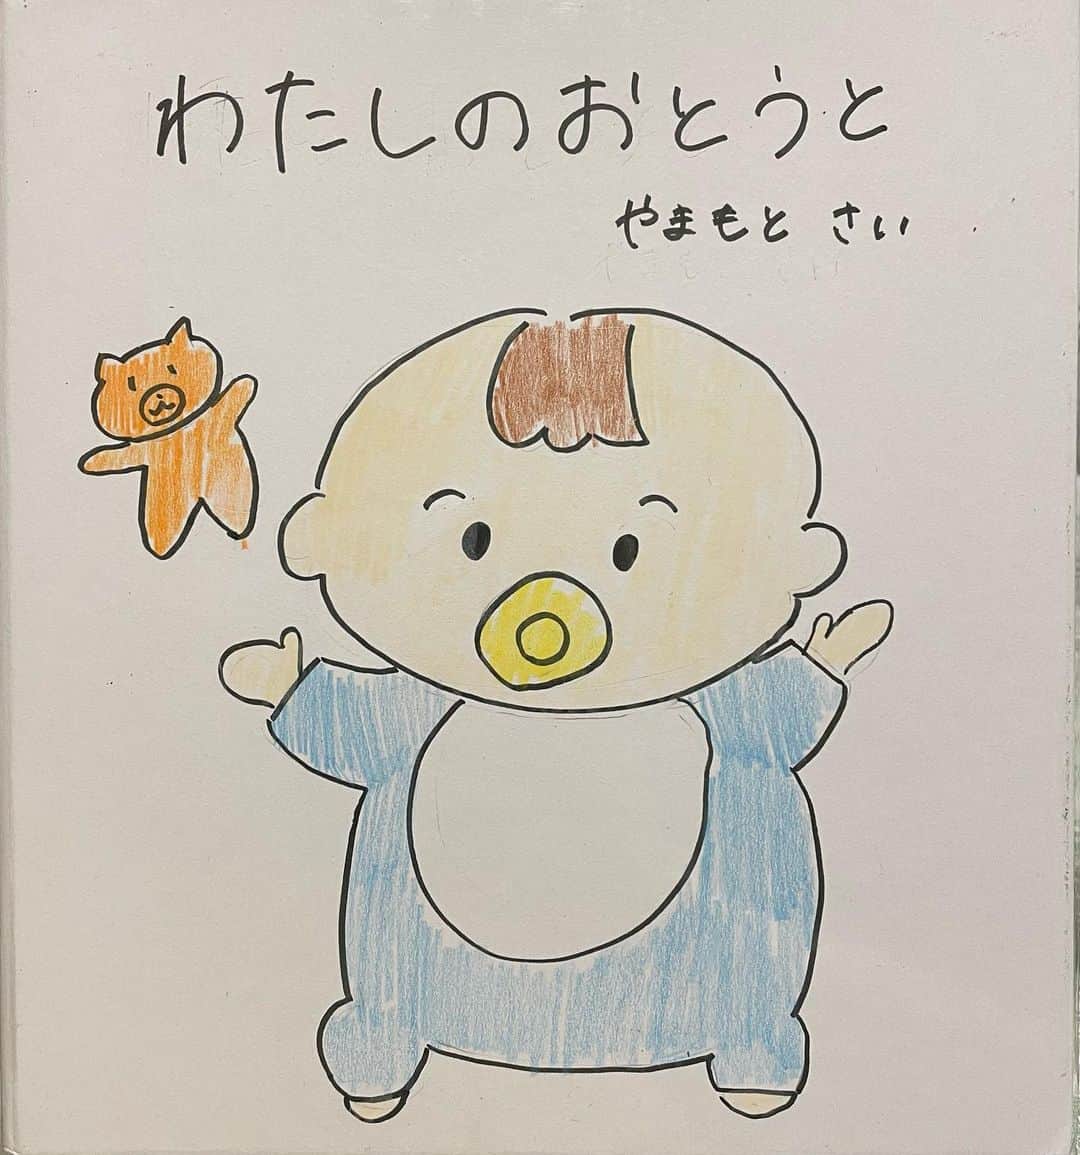 わたしのおとうと
やまもと さい